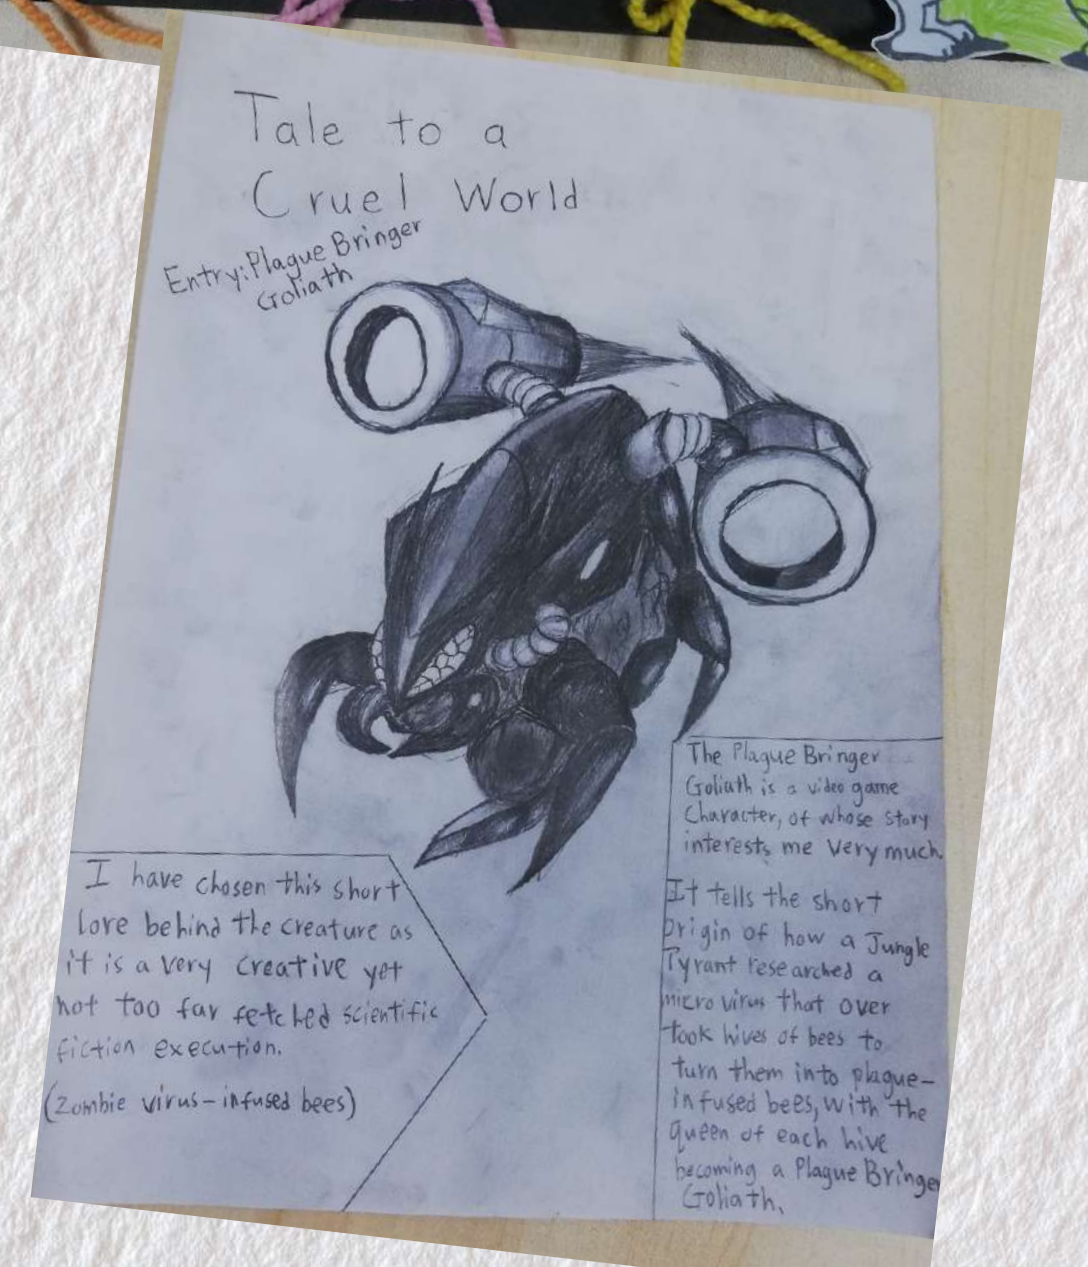 Tale to a
Cruel World
Entry: Plague Bringer
Goliath
I have chosen this short
lore behind the creature as
it is a very creative yet
not too far fetched scientific
fiction execution.
(Zombie virus-infused bees)
The Plague Bringer
Goliath is a video game
Character, of whose story
interests me very much.
It tells the short
Origin of how a Jungle
Tyrant researched a
micro virus that over
took hives of bees to
turn them into plague-
infused bees, with the
queen of each hive
becoming a Plague Bringer
Goliath.